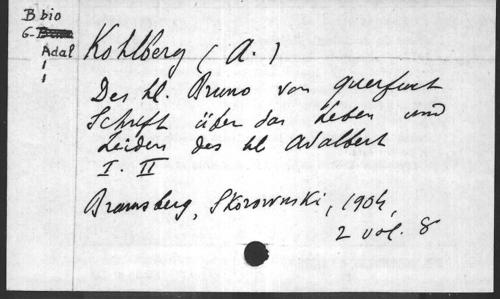 B bio
G-
Adal
Kohlberg (A.)
Des hl. Bruno von Querfurt
Schrift über das Leben und
Leiden des hl Adalbert
I. II
Braunsberg, Skorowski, 1904,
2 vol. 8